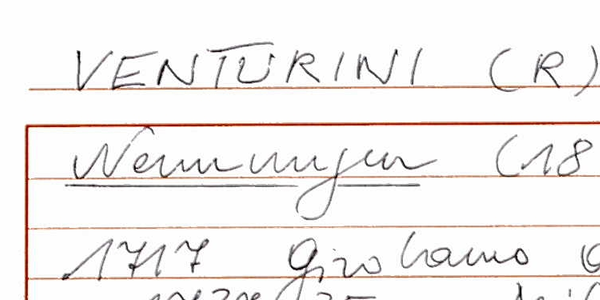 VENTURINI (R)
Nenningen (18
1717 Girolamo